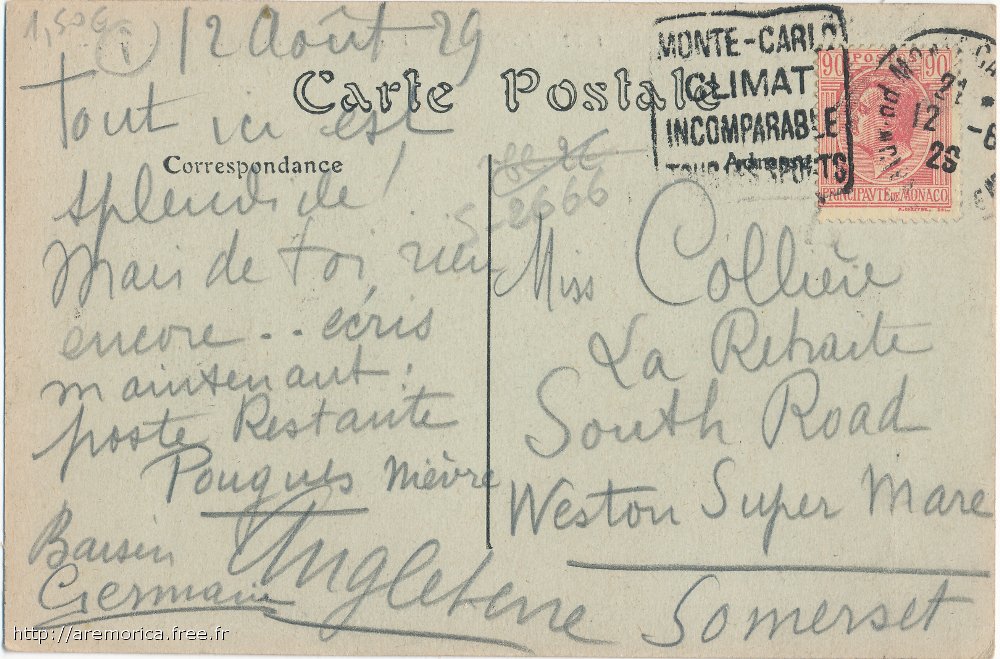 1,50€
1
12 Août 29
Carte Postale
Correspondance
Tout ici est
splendide!
Mais de toi, rien
encore.. écris
maintenant.
poste Restante
Pougues Nièvre
Germain
2666
MONTE-CARLO
CLIMAT
INCOMPARABLE
TOUS LES SPORTS
12
90 POSTES 90
PRINCIPAUTÉ DE MONACO
Miss Collière
La Retraite
South Road
Weston Super Mare
Somerset
Angleterre
http://aremorica.free.fr